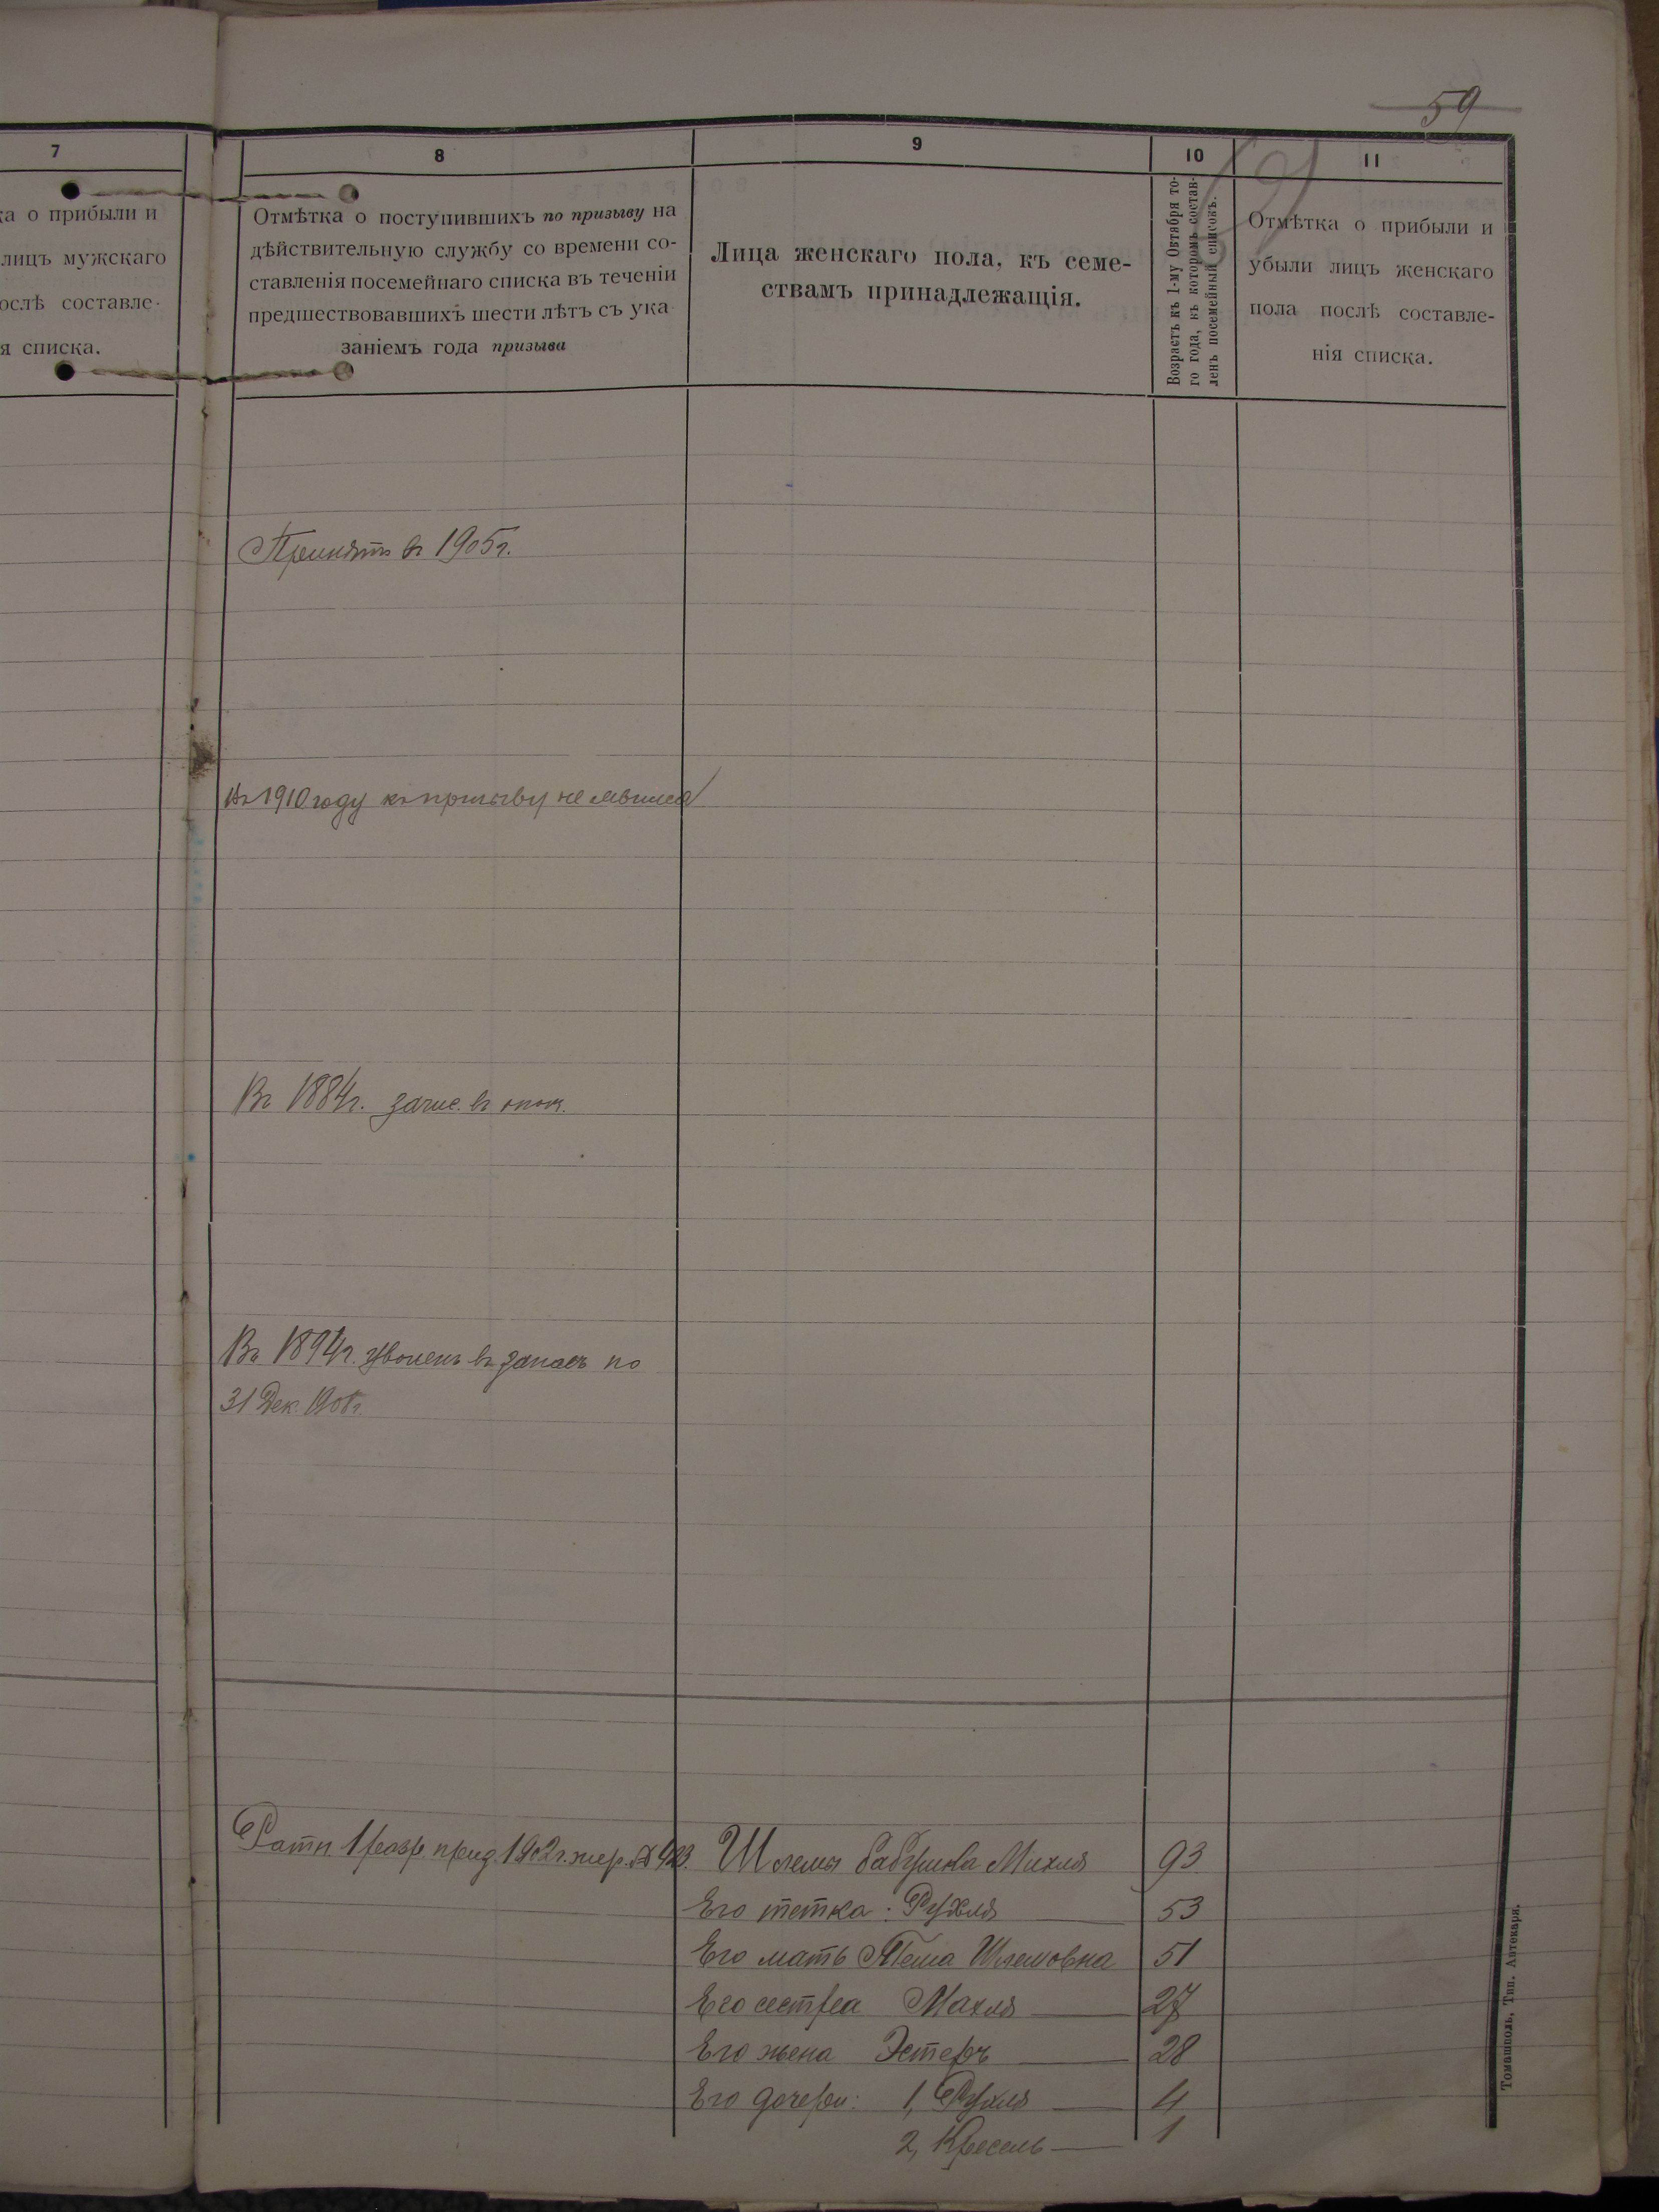 59
7
ка о прибыли и
лицъ мужскаго
ослѣ составле-
я списка.
8
Отмѣтка о поступившихъ по призыву на
дѣйствительную службу со времени со-
ставленія посемейнаго списка въ теченіи
предшествовавшихъ шести лѣтъ съ ука-
заніемъ года призыва
9
Лица женскаго пола, къ семе-
ствамъ принадлежащія.
10
Возрастъ къ 1-му Октября то-
го года, къ которомъ состав-
ленъ посемейный списокъ.
11
Отмѣтка о прибыли и
убыли лицъ женскаго
пола послѣ составле-
нія списка.
59
Принятъ въ 1905 г.
Въ 1910 году къ призыву не явился
Въ 1884 г. зачис. въ опол.
Въ 1894 г. уволенъ въ запасъ по
31 Дек. 1908 г.
Ратн 1 разр. приз. 1902 г. жер. № 423.
Шлемы бабушка Михля 93
Его тетка: Рухля — 53
Его мать Песя Шлемовна 51
Его сестра Махля — 27
Его жена Эстеръ — 28
Его дочери: 1, Рухля — 4
2, Кресель — 1
Томашполь, Тип. Аптекаря.